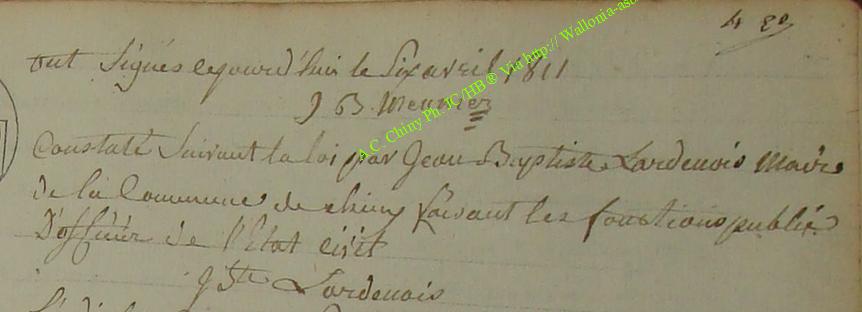 4 eo
ont Signés cejourd'huis le Six avril 1811
J B. Meunier
Constaté Suivant la loi par Jean Baptiste Lardenois Maire
de la Commune de Chiny faisant les fonctions publié
D'officier de l'Etat civil
J Bte Lardenois
A.C. Chiny Ph. JC/HB ® Via http:// Wallonia-asb